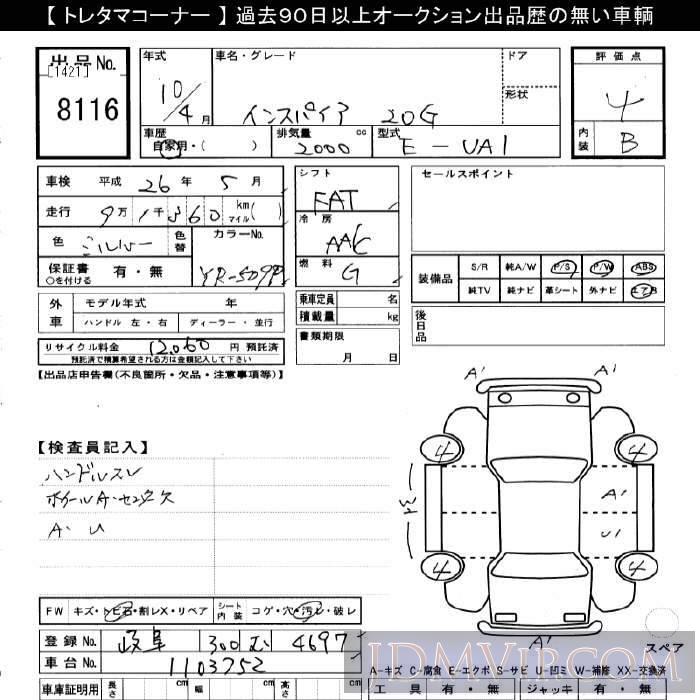 【トレタマコーナー】過去90日以上オークション出品歴の無い車輌
出品No.
[1421]
8116
年式 車名・グレード ドア
10/4月 インスパイア 20G 形状
車歴 排気量 cc 型式
自家用・( ) 2000 E-UA1
評価点
4
内装 B
車検 平成 26年 5月
走行 9万1千360 km マイル( )
色 シルバー 色替 カラーNo.
保証書 有・無
○を付ける
YR-509P
外車 モデル年式 年
ハンドル 左・右 ディーラー・並行
リサイクル料金 12,060 円 預託済
預託済で精算希望される方は金額記入して下さい
シフト
FAT
冷房
AAC
燃料
G
乗車定員 名
積載量 kg
書類期限
月 日
セールスポイント
装備品 S/R 純A/W P/S P/W ABS
純TV 純ナビ 革シート 外ナビ エアB
後日品
【出品店申告欄(不良箇所・欠品・注意事項等)】
【検査員記入】
ハンドルスレ
A・U
A' A'
4 4
A'
U1
4 4
A'
スペア
FW キズ・トビ石・割レX・リペア シート内装 コゲ・穴・汚レ・破レ
登録No. 岐阜 300 む 4697
車台No. 1103752
A-キズ C-腐食 E-エクボ S-サビ U-凹ミ W-補修 XX-交換済
車庫証明用 長さ cm 幅 cm 高さ cm
工具 有・無 ジャッキ 有・無
IDMVIRCOM.COM